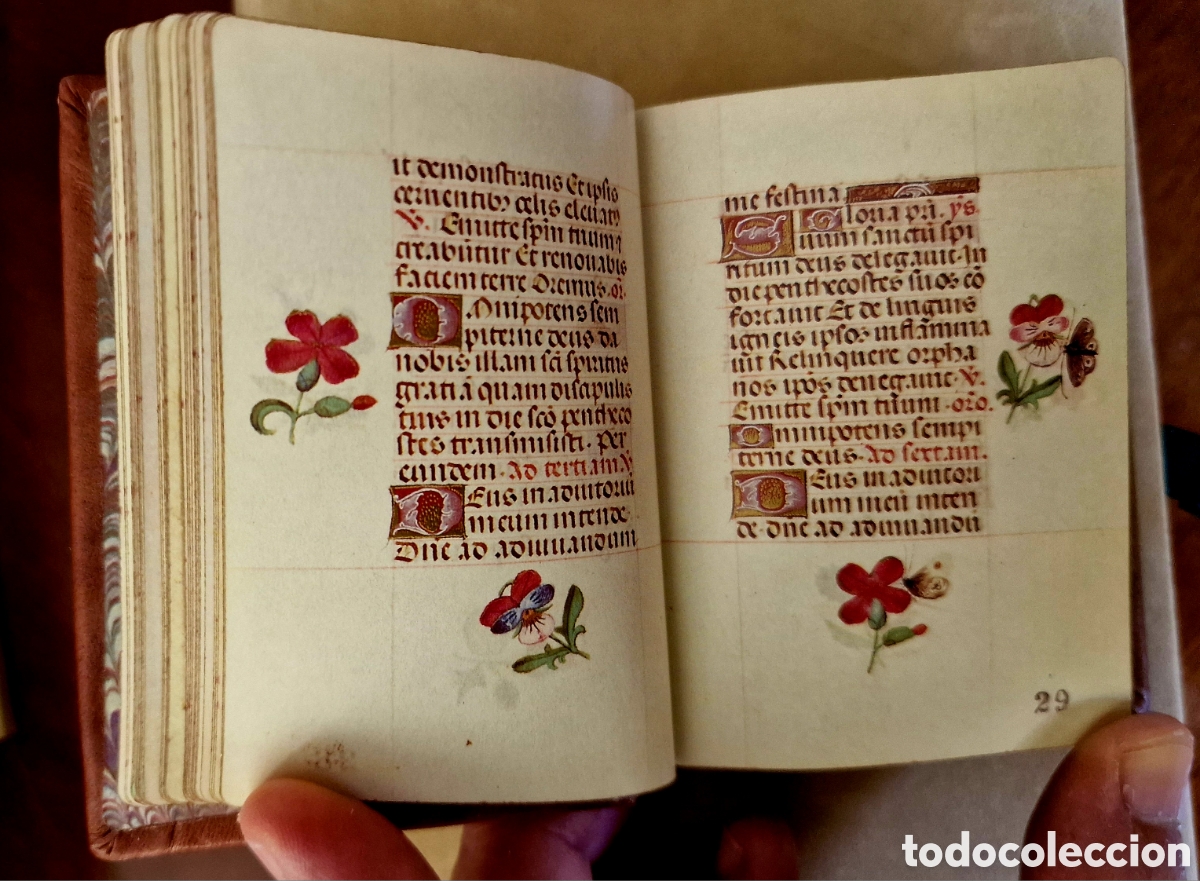 it demonstratus Et ipis
cernentibꝫ celis eleuatꝰ
℣. Emitte spm tuum ⁊
creabūtur Et renouabis
faciem terre Oremus. or̄.
Omnipotens sem
piterne deus da
nobis illam sc̄i spiritus
gratiā quam discipulis
tuis in die sc̄o penthecо
stes transmisisti. Per
eundem. Ad tertiam ℣
Deus in adiutoriū
meum intende.
Dn̄e ad adiuuandum
me festina
Gloria pr̄i. ys.
Suum sanctū spi
ritum deus delegauit. In
die penthecostes suos cō
fortauit Et de linguis
igneis ipsos inflāmma
uit Relinquere orpha
nos ip̄os denegauit. ℣.
Emitte sp̄m tuum. or̄o.
Omnipotens sempi
terne deus. Ad sextam.
Deus in adiutori
um meū inten
de. dn̄e ad adiuuandū
29
todocoleccion